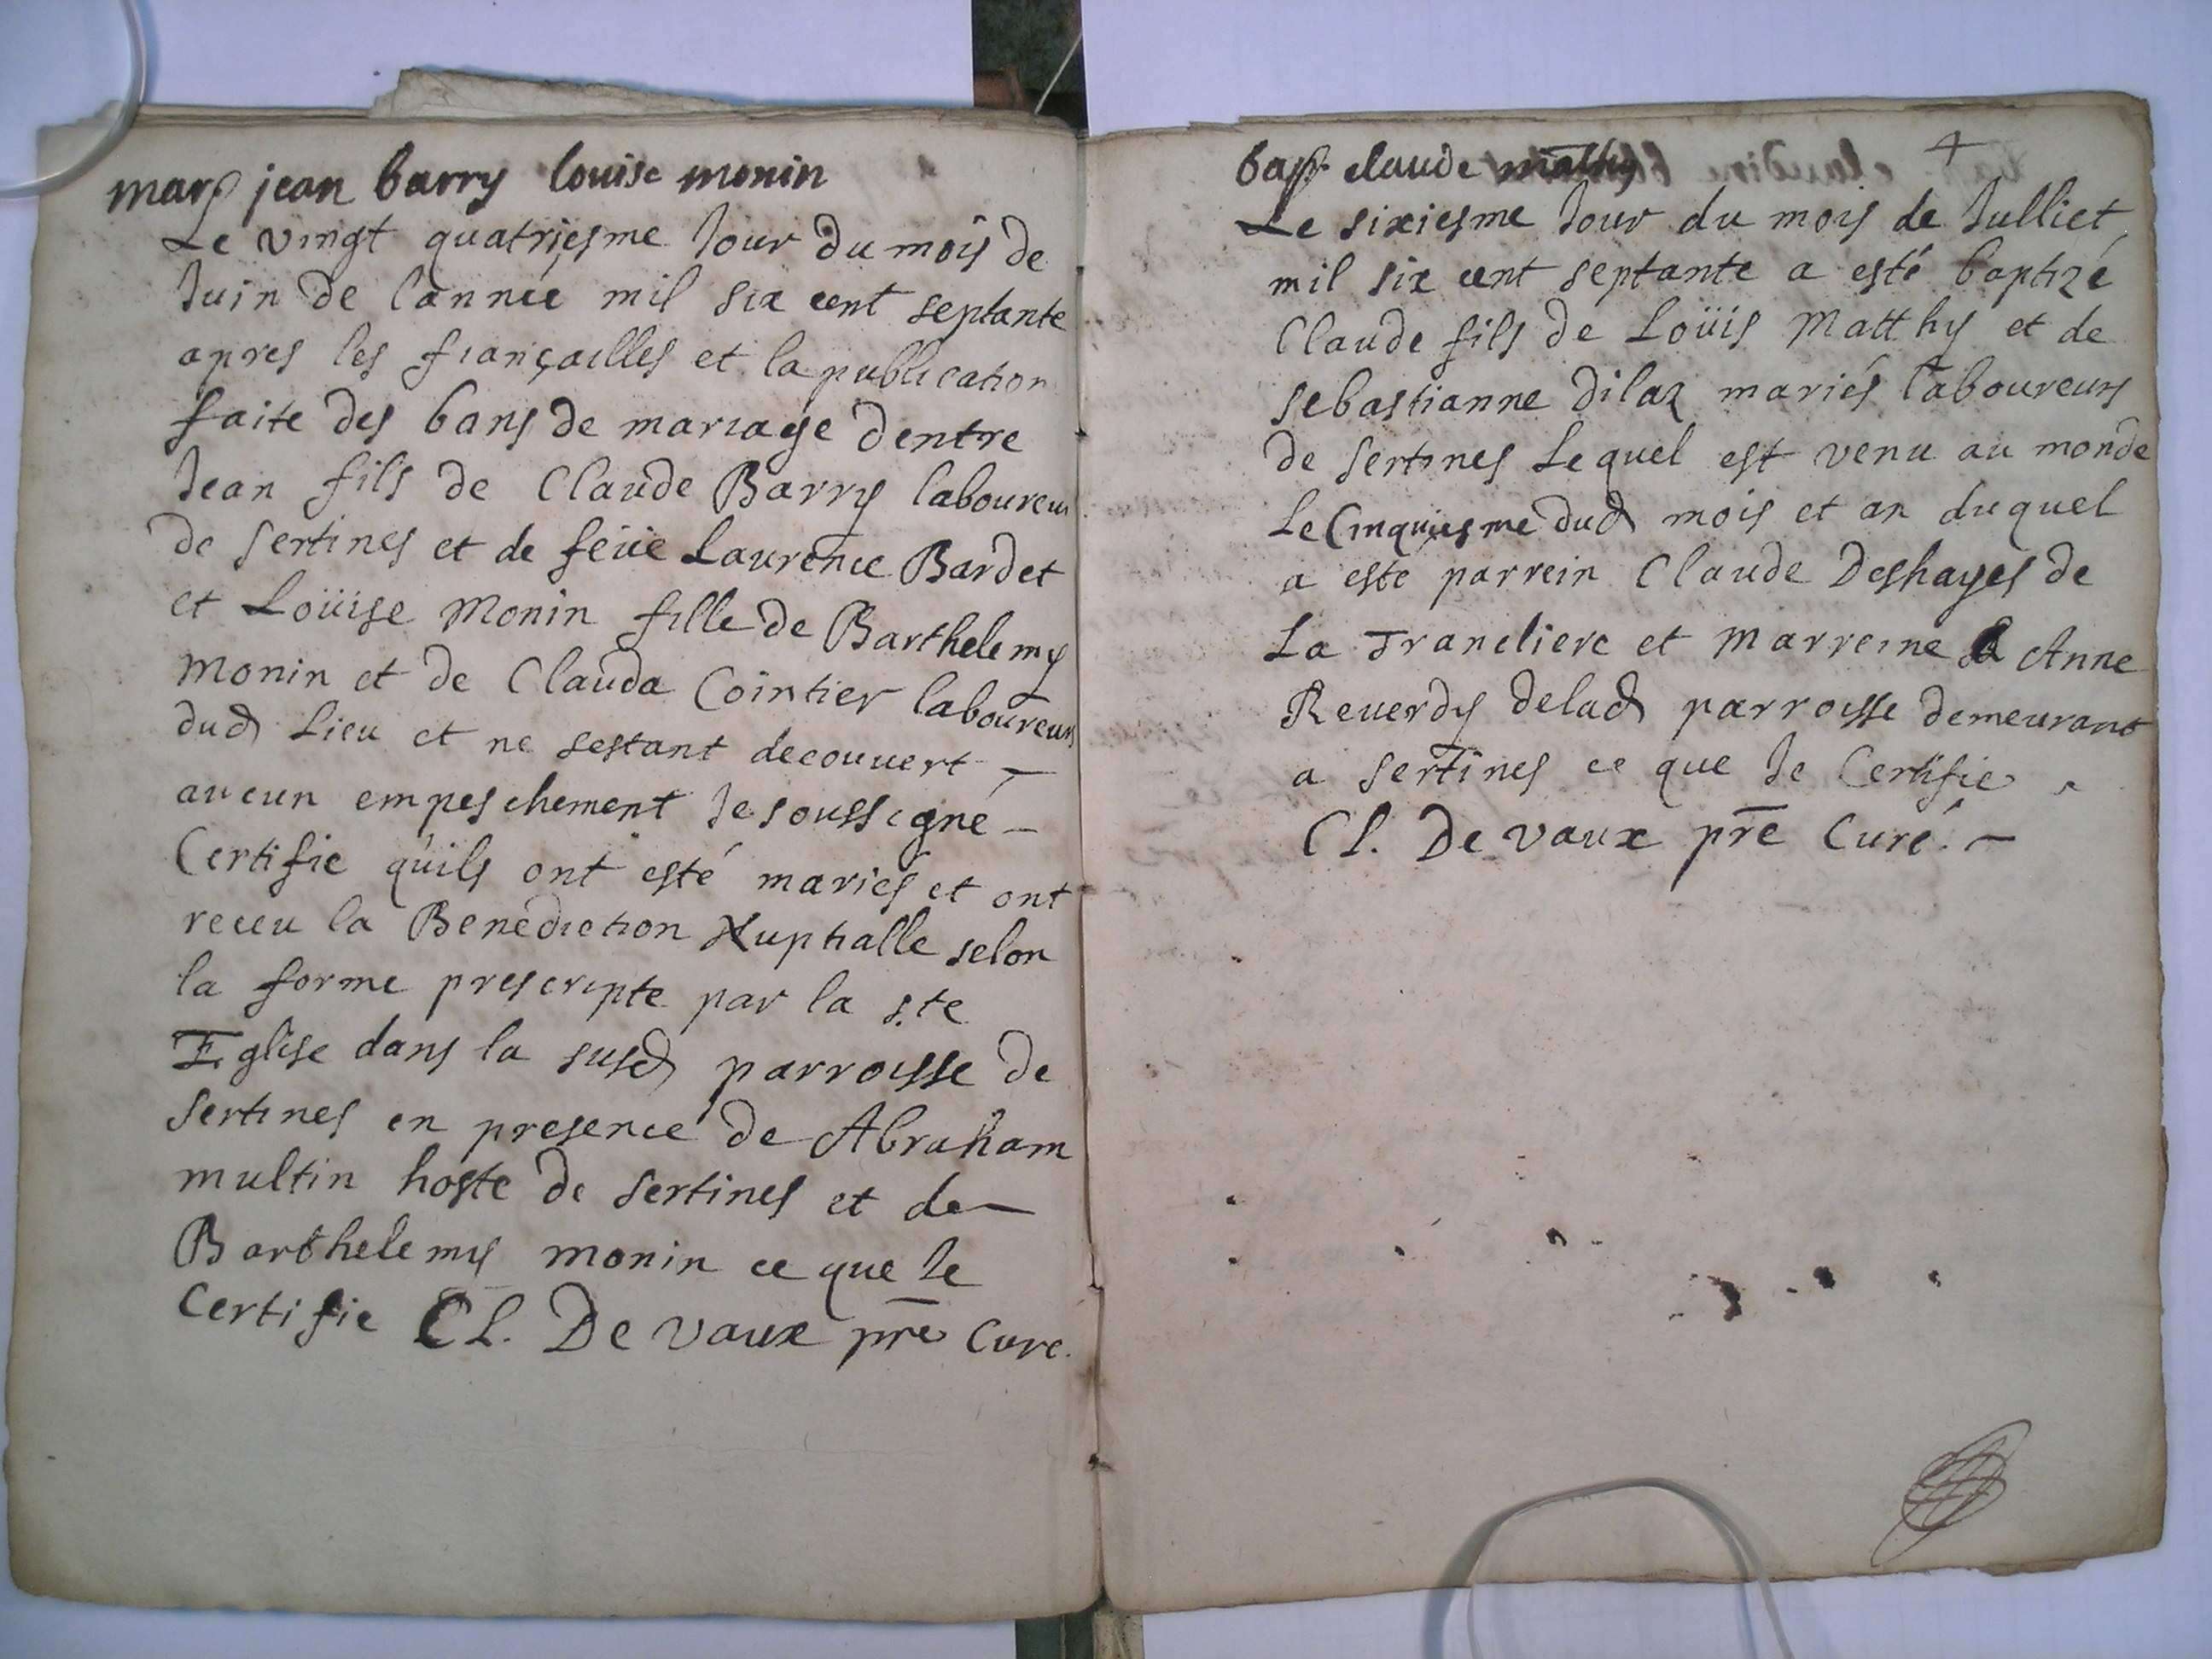 marg jean barry louise monin
Le vingt quatriesme Jour du mois de
Juin de l'année mil six cent septante
apres les françailles et la publication
faite des bans de mariage dentre
Jean fils de Claude Barry laboureur
de Sertines et de feüe Laurence Bardet
et Loüise Monin fille de Barthelemy
Monin et de Clauda Cointier laboureurs
dud Lieu et ne sestant decouuert —
aucun empeschement Je soussigné —
Certifie quils ont esté mariés et ont
receu la Benediction Nuptialle selon
la forme prescripte par la s.te
Eglise dans la susd parroisse de
Sertines en presence de Abraham
multin hoste de Sertines et de —
Barthelemy monin ce que Je
Certifie CL. De vaux pre Cure.
4
bap. claude mathy
Le sixiesme Jour du mois de Julliet
mil six cent septante a esté baptizé
Claude fils de Loüis Matthy et de
Sebastianne Dilaz mariés laboureurs
de Sertines Lequel est venu au monde
Le Cinquiesme dud mois et an duquel
a esté parrein Claude Deshayes de
La Trancliere et Marreine Anne
Reuerdy delad parroisse demeurant
a Sertines ce que Je Certifie
CL. De vaux pre Curé. —